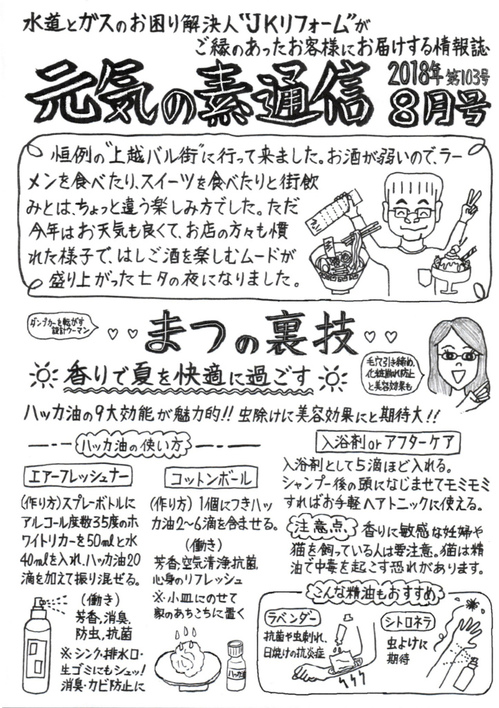 水道とガスのお困り解決人"JKリフォーム"が
ご縁のあったお客様にお届けする情報誌
元気の素通信
2018年 第103号
8月号
恒例の"上越バル街"に行って来ました。お酒が弱いので、ラー
メンを食べたり、スイーツを食べたりと街飲
みとは、ちょっと違う楽しみ方でした。ただ
今年はお天気も良くて、お店の方々も慣
れた様子で、はしご酒を楽しむムードが
盛り上がった七夕の夜になりました。
ダンプカーを転がす
設計ウーマン
♡♡まつの裏技♡♡
香りで夏を快適に過ごす
毛穴引き締め、
化粧崩れ防止
と美容効果も
ハッカ油の9大効能が魅力的!! 虫除けに美容効果にと期待大!!
ハッカ油の使い方
エアーフレッシュナー
(作り方)スプレーボトルに
アルコール度数35度のホ
ワイトリカーを50mlと水
40mlを入れ、ハッカ油20
滴を加えて振り混ぜる。
(働き)
芳香、消臭、
防虫、抗菌
※シンク、排水口・
生ゴミにもシュッ!
消臭・カビ防止に
コットンボール
(作り方) 1個につきハッ
カ油2〜6滴を含ませる。
(働き)
芳香、空気清浄、抗菌、
心身のリフレッシュ
※小皿にのせて
家のあちこちに置く
ハッカ油
入浴剤orアフターケア
入浴剤として5滴ほど入れる。
シャンプー後の頭になじませてモミモミ
すればお手軽ヘアトニックに使える。
注意点 香りに敏感な妊婦や
猫を飼っている人は要注意。猫は精
油で中毒を起こす恐れがあります。
こんな精油もおすすめ
ラベンダー
抗菌や虫刺され、
日焼けの抗炎症
シトロネラ
虫よけに
期待